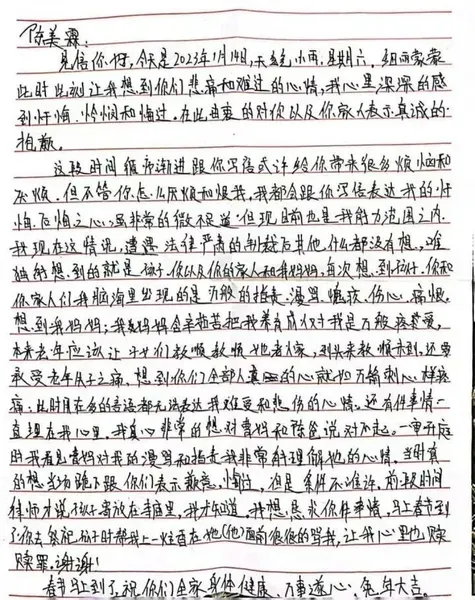 陈美霖:
见信你好,今天是2023年1月14,天气小雨,星期六,细雨蒙蒙
此时此刻让我想到你们悲痛和难过的心情,我心里深深的感
到忏悔、怜悯和悔过。在此由衷的对你以及你家人表示真诚的
抱歉。
这段时间很 跟你写信或许给你带来很多烦恼和
厌烦。但不管你怎么厌烦和恨我,我都会跟你写信表达我的忏
悔。忏悔之心虽非常的微不足道但现目前也是我能力范围之内
我现在这情况,遭遇法律严肃的制裁后其他什么都没有想,唯
独能想到的就是孩子、你以及你的家人和我妈妈,每次想到孩子、你和
你家人们我脑海里出现的是万般的指责、漫骂、愧疚、伤心、痛恨。
想到我妈妈;我妈妈含辛茹苦把我养育成人对我是万般疼爱,
本来老年应该让子女们教顺教顺她老人家,到头来教顺未到,还要
承受老年丧子之痛,想到你们全部人 的心就如万箭刺心一样疼
痛;此时用在多的言语都无法表达我难受和悲伤的心情。还有件事情一
直埋在我心里,我真心非常的想对曹妈和陈爸说对不起。一审开庭
时我看见曹妈对我的漫骂和指责我非常能理解她的心情,当时真
的想当场跪下跟你们表示歉意、悔过,但是条件不准许。前段时间
律师才说孩子寄放在寺庙里,我才知道,我想恳求你件事情,马上春节到
了你去祭祀孩子时帮我上一炷香在她(他)面前狠狠的骂我,让我心里也赎
赎罪。谢谢!
春节马上到了,祝你们全家身体健康、万事遂心、兔年大吉。